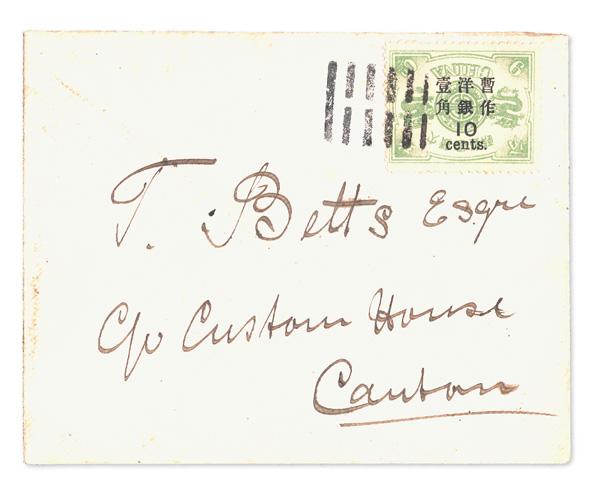 暫作洋銀壹角
10
cents.
T. Betts Esqre
C/o Custom House
Canton